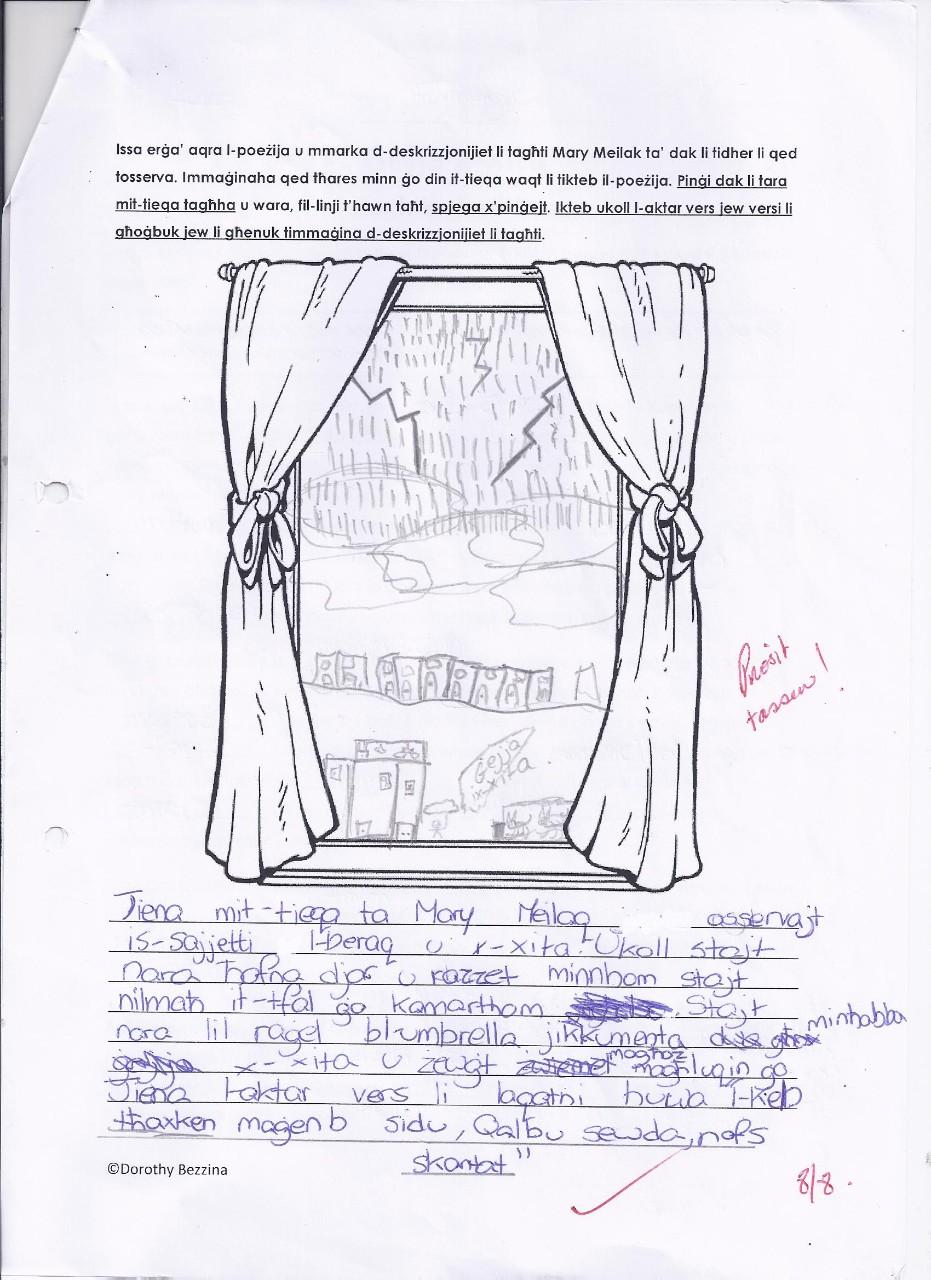 Issa erġa' aqra l-poeżija u mmarka d-deskrizzjonijiet li tagħti Mary Meilak ta' dak li tidher li qed
tosserva. Immaġinaha qed tħares minn ġo din it-tieqa waqt li tikteb il-poeżija. Pinġi dak li tara
mit-tieqa tagħha u wara, fil-linji t'hawn taħt, spjega x'pinġejt. Ikteb ukoll l-aktar vers jew versi li
għoġbuk jew li għenuk timmaġina d-deskrizzjonijiet li tagħti.
Ġejja
ix-xita
Prosit
tassew!
Jiena mit-tieqa ta Mary Meilaq osservajt
is-sajjetti l-beraq u x-xita. Ukoll stajt
nara ħafna djar u minnhom stajt
nilmaħ it-tfal ġo kamarthom . Stajt
nara lil raġel bl-umbrella jikkumenta minħabba
x-xita u żewġt mogħoż magħluqin ġo
Jiena l-aktar vers li laqatni huwa "l-Kelb
tħaxken maġenb sidu, Qalbu sewda, nofs
©Dorothy Bezzina
8/8.